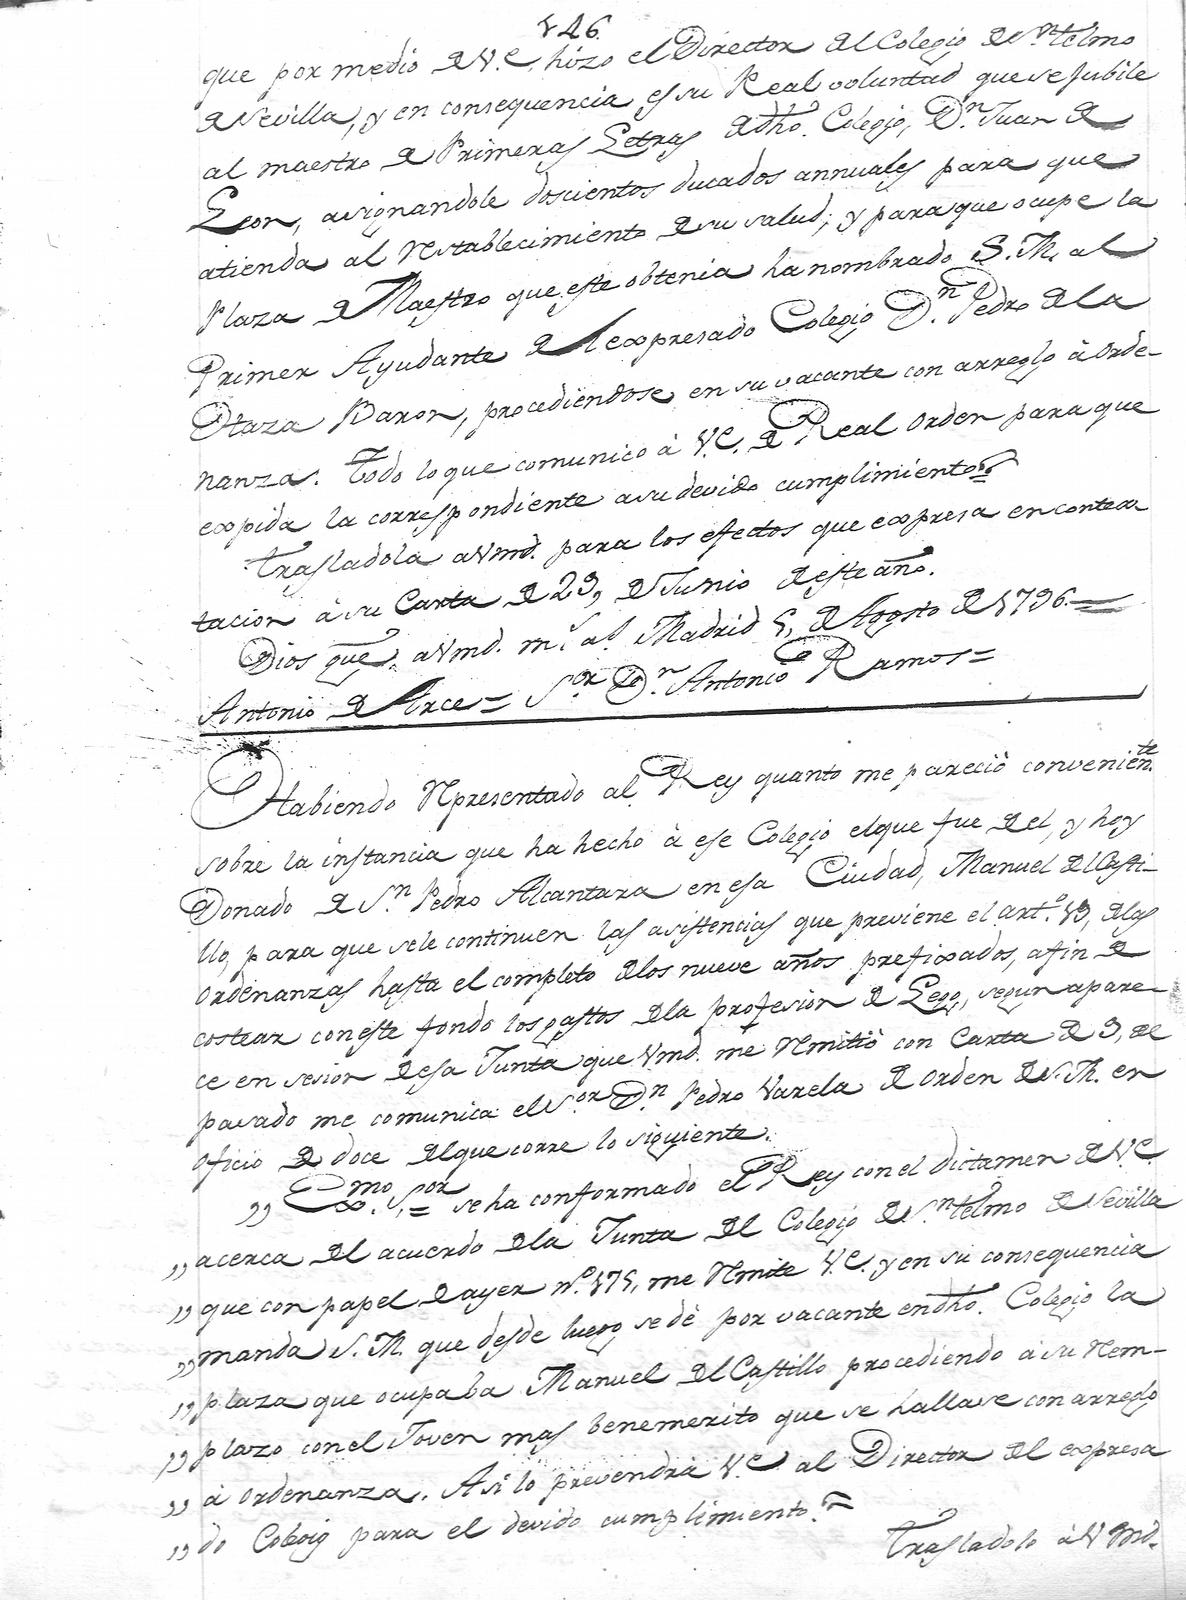 146
que por medio de V.E. hizo el Director del Colegio de Sn. Telmo
de Sevilla, y en consequencia es su Real voluntad que se jubile
al maestro de Primeras Letras de dho. Colegio, Dn. Juan de
Leon, asignandole doscientos ducados annuales para que
atienda al restablecimiento de su salud; y para que ocupe la
Plaza de Maestro que este obtenia ha nombrado S.M. al
Primer Ayudante del expresado Colegio Dn. Pedro de la
Otaza Baron, procediendose en su vacante con arreglo à Orde-
nanzas. Todo lo que comunico à V.E. de Real Orden para que
expida la correspondiente a su devido cumplimiento
Trasladola a Vmd. para los efectos que expresa en contex
tacion à su Carta de 29, de Junio de este año.
Dios gue. a Vmd. ms. as. Madrid 5, de Agosto de 1796.=
Antonio de Arce= Sor. Dn. Antonio Ramos=
Habiendo representado al Rey quanto me pareciò conveniente.
sobre la instancia que ha hecho à ese Colegio el que fue de el, y hoy
Donado de Sn. Pedro Alcantara en esa Ciudad, Manuel del Casti-
llo, para que se le continuen las asistencias que previene el arto. 19, de las
Ordenanzas hasta el completo de los nueve años prefixados, afin de
costear con este fondo los gastos de la profesion de Lego, segun apare-
ce en sesion de esa Junta que Vmd. me remitiò con Carta de 3, de
pasado me comunica el Sor. Dn. Pedro Varela de Orden de S.M. en
oficio de doce del que corre lo siguiente.
„ Exmo. Sor.= se ha conformado el Rey con el dictamen de V.E.
„ acerca del acuerdo de la Junta del Colegio de Sn. Telmo de Sevilla
„ que con papel de ayer no. 175, me remite V.E. y en su consequencia
„ manda S.M. que desde luego se dè por vacante en dho. Colegio la
„ plaza que ocupaba Manuel del Castillo procediendo à su reem-
„ plazo con el Joven mas benemerito que se hallase con arreglo
„ à Ordenanza. Asi lo prevendrà V.E. al Director del expresa
„ do Coleoig para el devido cumplimiento.=
Trasladolo à Vmd.